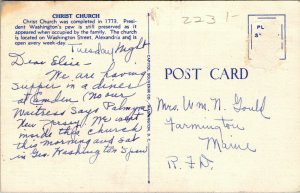 CHRIST CHURCH
Christ Church was completed in 1773. Presi-
dent Washington's pew is still preserved as it
appeared when occupied by the family. The church
is located on Washington Street, Alexandria and is
open every week-day.
2231-
PL
Tuesday Night
Dear Elsie-
We are having
supper in a diner
at Camden (No our
Waitress says Palmyra
New Jersey) We went
inside this church
this morning and sat
in Geo. Washington's pew
POST CARD
Mrs. Wm. N. Gould
Farmington
Maine
R.F.D.